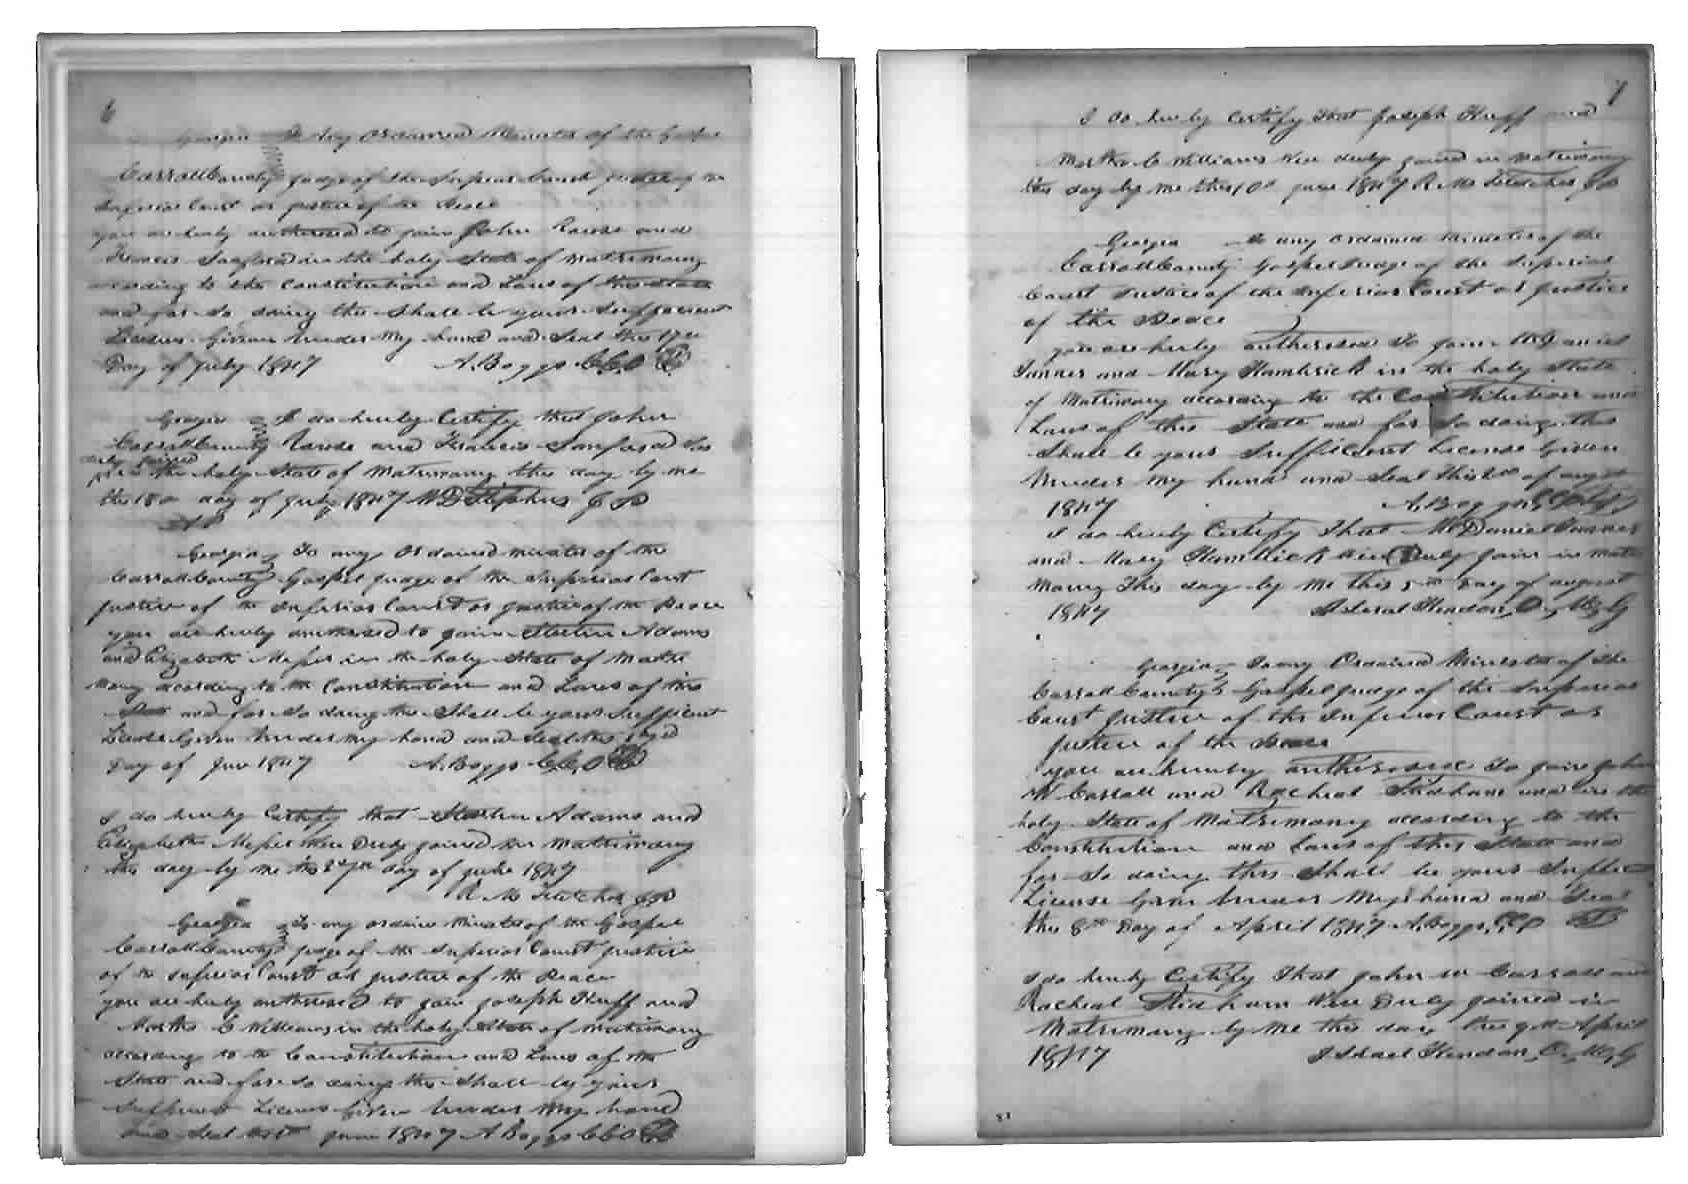 6
Georgia To Any Ordained Minister of the Gospel
Carroll County Judge of the Superior Court Justice of the
Inferior Court or justice of the Peace
you are hereby authorised to join John and
Francis Sanford in the holy State of matrimony
according to the Constitution and Laws of this State
and for So doing this Shall be yours Sufficient
License Given Under My hand and Seal this 17th
Day of July 1847 A. Boggs C.C.O
Georgia I do hereby Certify that John
Carroll County and Francis Sanford was
duly joined
in the holy State of Matrimony this day by me
the 18th day of July 1847 W D Stephens J P
Georgia To any Ordained minister of the
Carroll County Gospel judge of the Superior Court
justice of the Inferior Court or justice of the Peace
you are hereby authorised to join Adams
and Elizabeth in the holy State of Matri
mony according to the Constitution and Laws of this
State and for So doing this Shall be yours Sufficient
License Given Under my hand and Seal this
Day of June 1847 A. Boggs C.C.O
I do hereby Certify that Adams and
Elizabeth were Duly joined in matrimony
this day by me the 27th day of June 1847
R M J P
Georgia To any ordaine Minister of the Gospel
Carroll County judge of the Superior Court justice
of the inferior Court or justice of the Peace
you are hereby authorised to join Joseph Huff and
Martha C Williams in the holy State of matrimony
according to the Constitution and Laws of this
State and for So doing this Shall by yours
Sufficient License Given Under My hand
and Seal June 1847 A Boggs C C O
7
I do hereby Certify that Joseph Huff and
Martha C Williams were duly joined in matrimony
this day by me this 10th June 1847 R M J P
Georgia To any ordained Minister of the
Carroll County Gospel Judge of the Superior
Court Justice of the Inferior Court or justice
of the Peace
you are hereby authorised to join McDaniel
Tanner and Mary Hambrick in the holy State
of Matrimony according to the Constitution and
Laws of this State and for So doing this
Shall be yours Sufficient License Given
Under My hand and Seal this of august
1847 A. Boggs
I do hereby Certify That McDaniel Tanner
and Mary Hambrick were Duly join in matri
mony This day by me this 5th Day of august
1847 Hendon, O, M, G
Georgia To any Ordained Minister of the
Carroll County Gospel judge of the Superior
Court justice of the Inferior Court or
justice of the Peace
you are hereby authorised To join John
W Carroll and Racheal Stidham and in the
holy State of Matrimony according to the
Constitution and Laws of this State and
for So doing this Shall be yours
License Given Under My hand and Seal
this 8th Day of April 1847 A. Boggs, C C O
I do hereby Certify That John W Carroll and
Racheal Stidham were Duly joined in
Matrimony by Me this day the 9th April
1847 Hendon, O, M, G